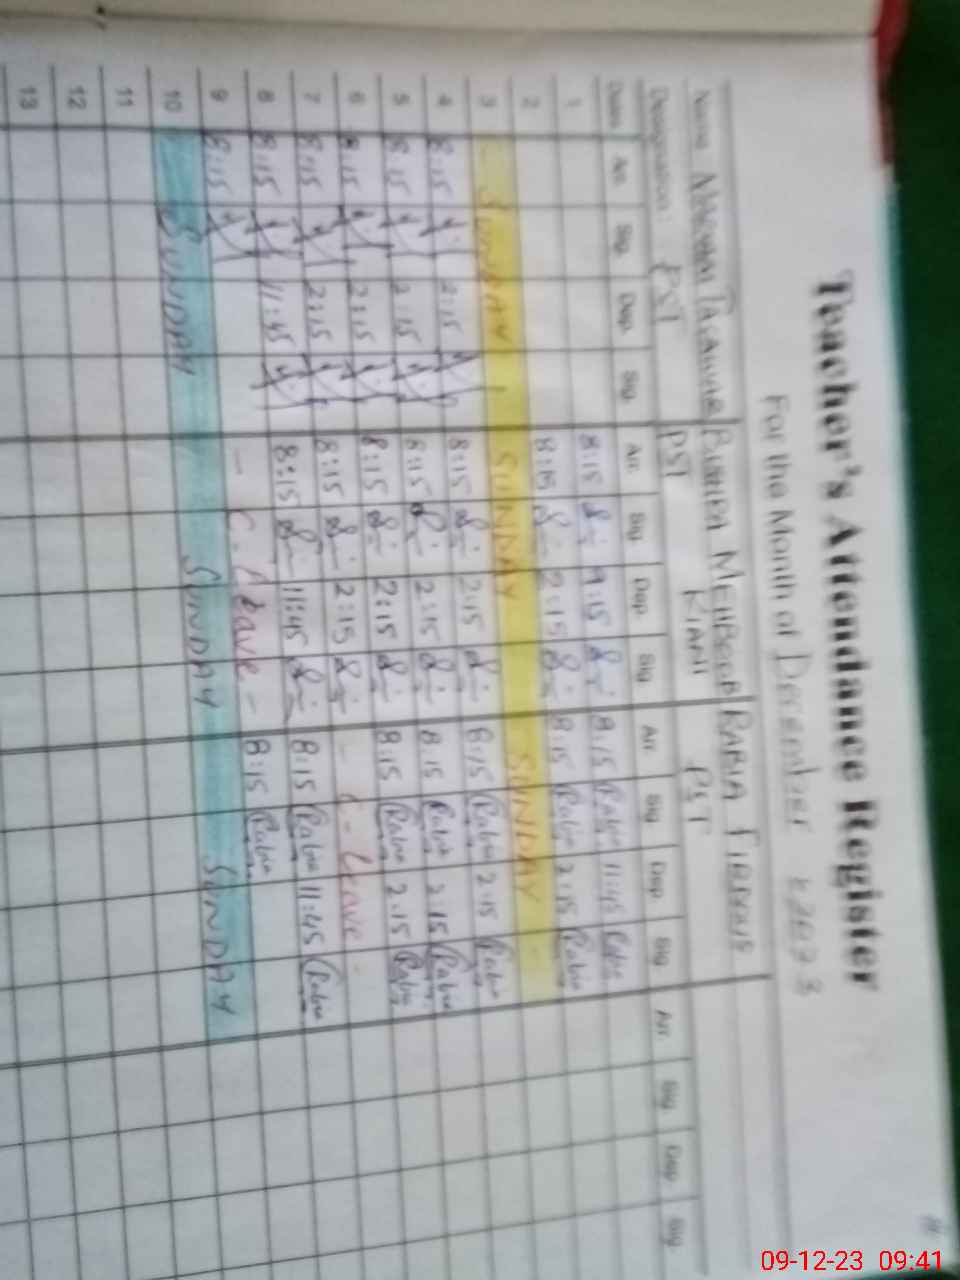 Teacher's Attendance Register
For the Month of December 2023
Name BUSHRA MEHBOOB RABIA FIRDOUS
Designation: PST PST KIANI PST
Date Arr. Sig Dep. Sig. Arr. Sig Dep. Sig Arr Sig Dep Sig Arr. Sig Dep Sig
1 8:15 8:15 Rabia 11:45 Rabia
2 8:15 2:15 8:15 Rabia 2:15 Rabia
3 - SUNDAY SUNDAY SUNDAY -
4 8:15 2:15 8:15 2:15 8:15 Rabia 2:15 Rabia
5 8:15 2:15 8:15 2:15 8:15 Rabia 2:15 Rabia
6 8:15 2:15 8:15 2:15 8:15 Rabia 2:15 Rabia
7 8:15 2:15 8:15 2:15 - C-Leave -
8 8:15 11:45 8:15 11:45 8:15 Rabia 11:45 Rabia
9 8:15 - C-Leave - 8:15 Rabia
10 SUNDAY SUNDAY SUNDAY
11
12
13
09-12-23 09:41